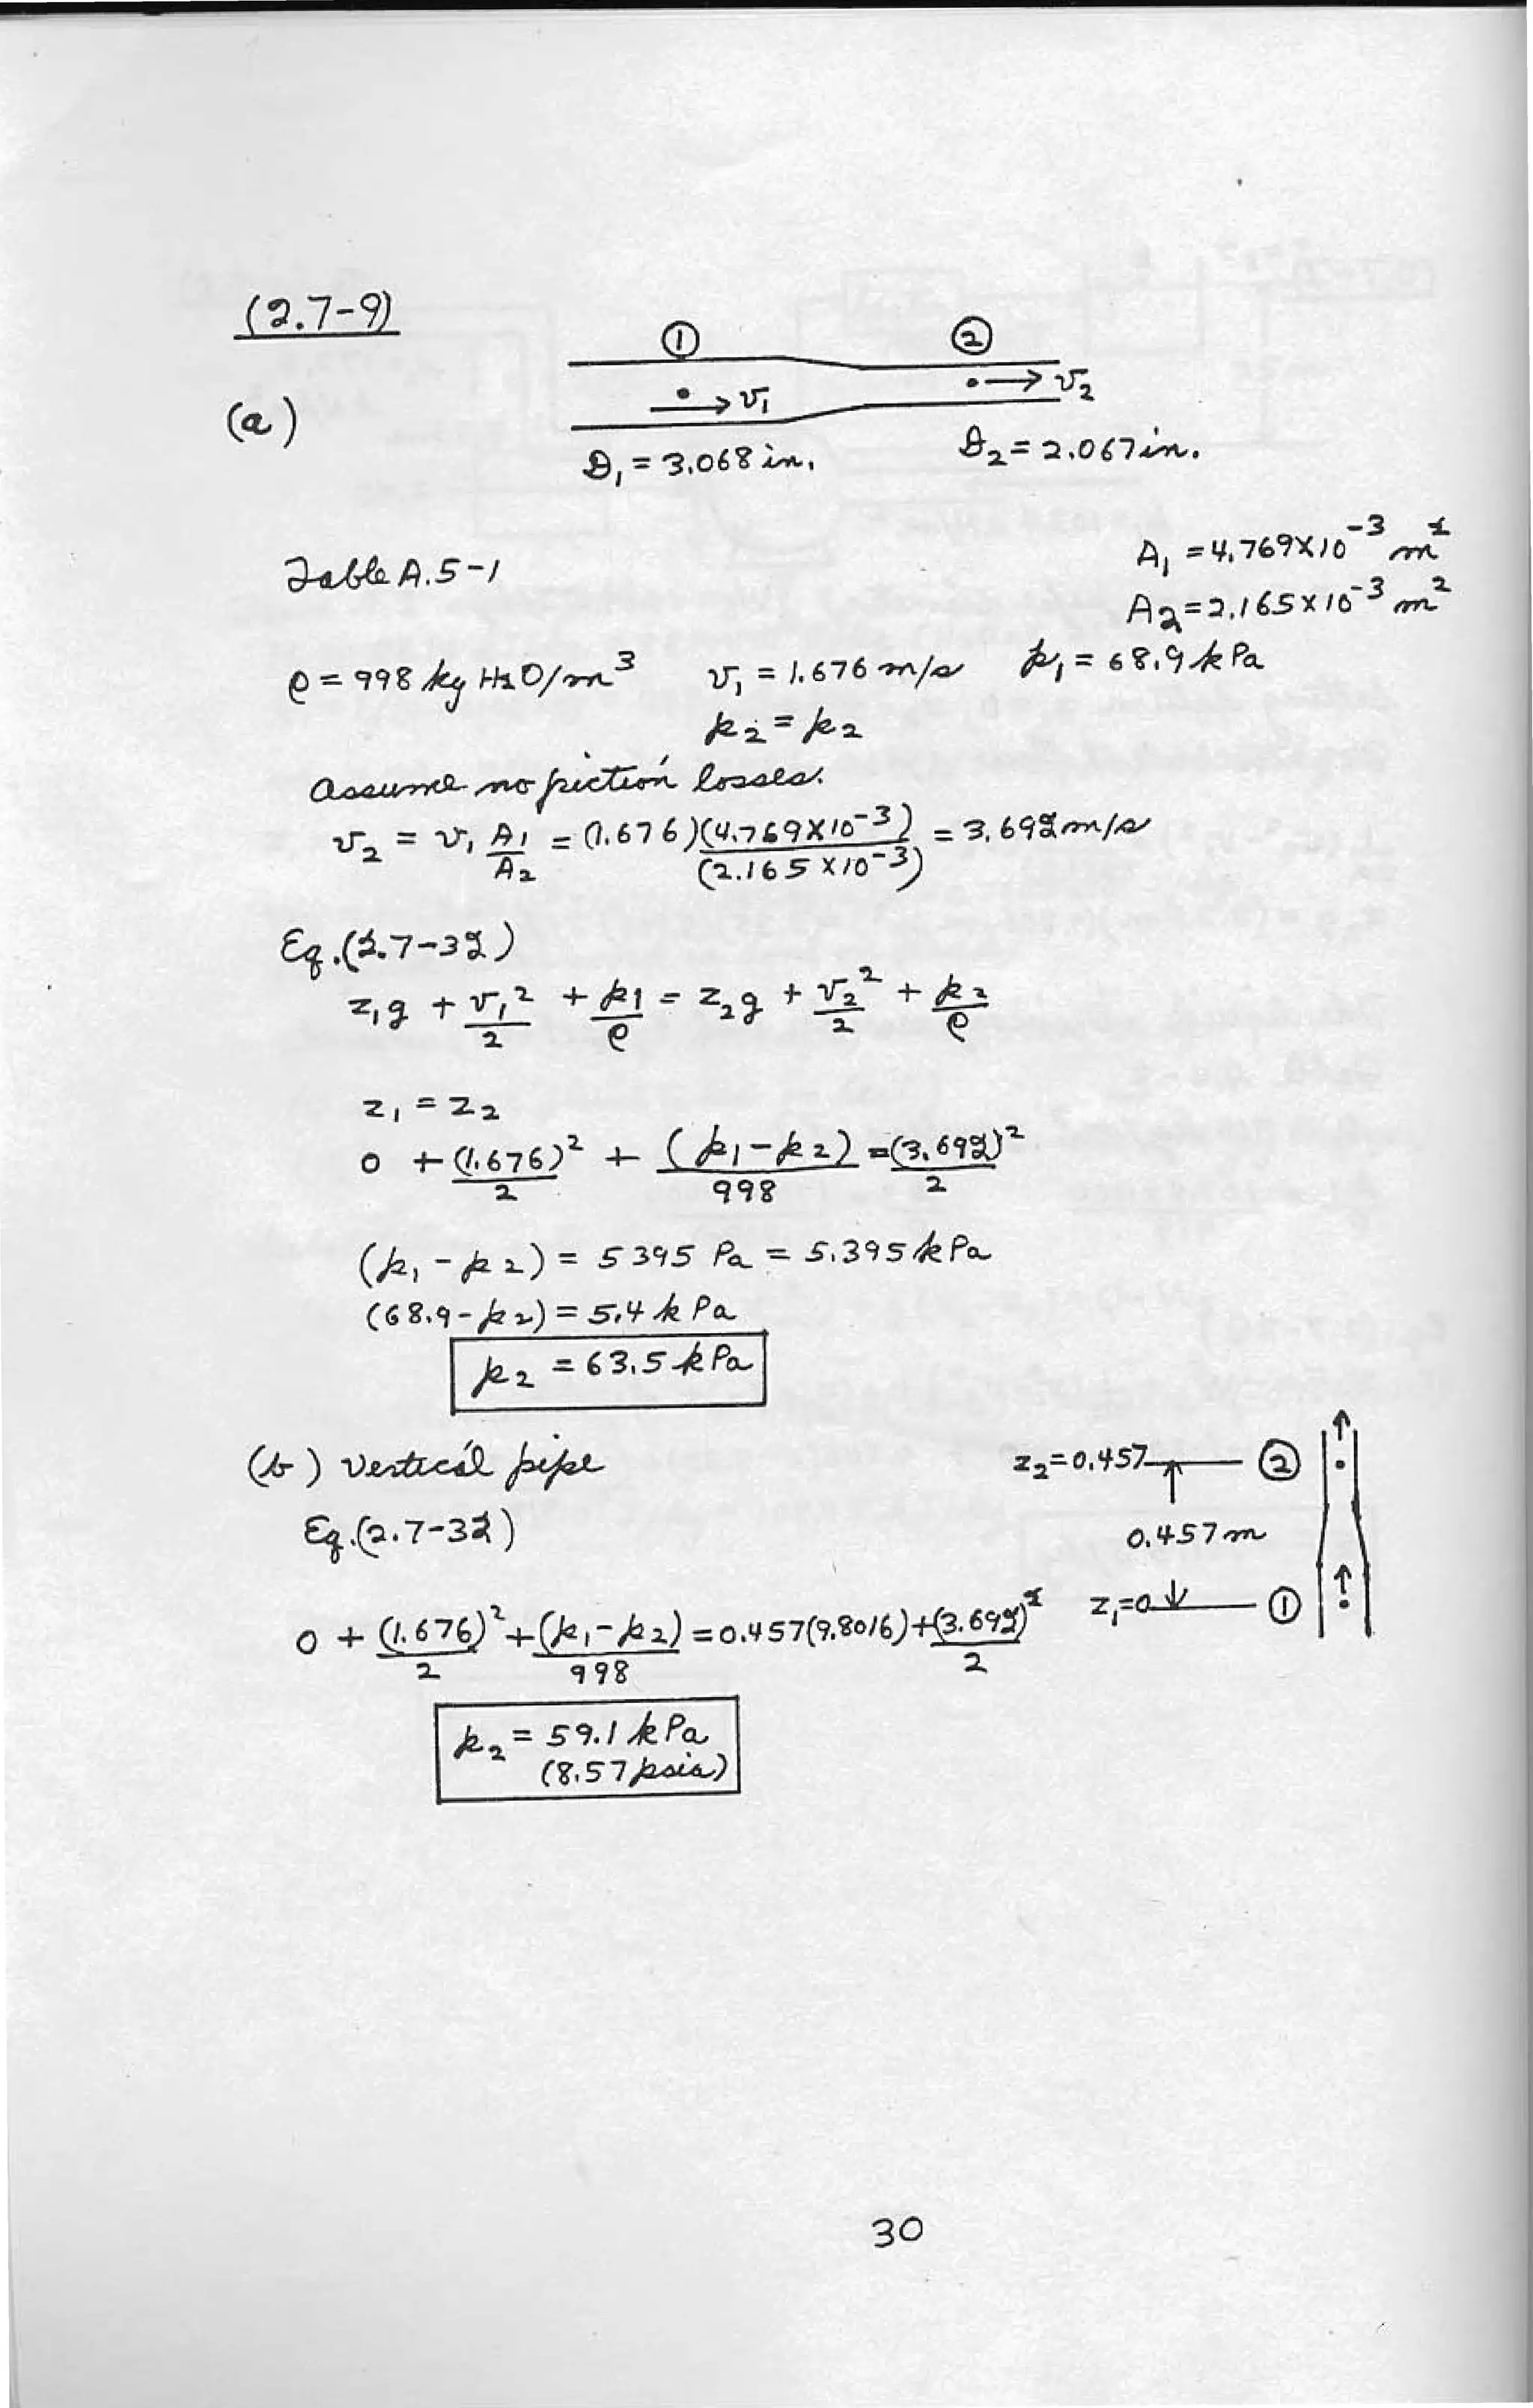 (2.7-9)
① ②
(a) v₁ v₂
D₁ = 3.068 in. D₂ = 2.067 in.
Table A.5-1 A₁ = 4.769 x 10⁻³ m²
A₂ = 2.165 x 10⁻³ m²
ρ = 998 kg H₂O/m³ v₁ = 1.676 m/s p₁ = 68.9 kPa
p₂ = p₂
Assume no friction losses.
v₂ = v₁ A₁/A₂ = (1.676)(4.769 x 10⁻³)/(2.165 x 10⁻³) = 3.692 m/s
Eq.(2.7-32)
z₁g + v₁²/2 + p₁/ρ = z₂g + v₂²/2 + p₂/ρ
z₁ = z₂
0 + (1.676)²/2 + (p₁-p₂)/998 = (3.692)²/2
(p₁ - p₂) = 5395 Pa = 5.395 kPa
(68.9 - p₂) = 5.4 kPa
p₂ = 63.5 kPa
(b) Vertical pipe z₂=0.457 ②
Eq.(2.7-32) 0.457 m
0 + (1.676)²/2 + (p₁-p₂)/998 = 0.457(9.8016)+(3.692)²/2 z₁=0 ①
p₂ = 59.1 kPa
(8.57 psia)
30